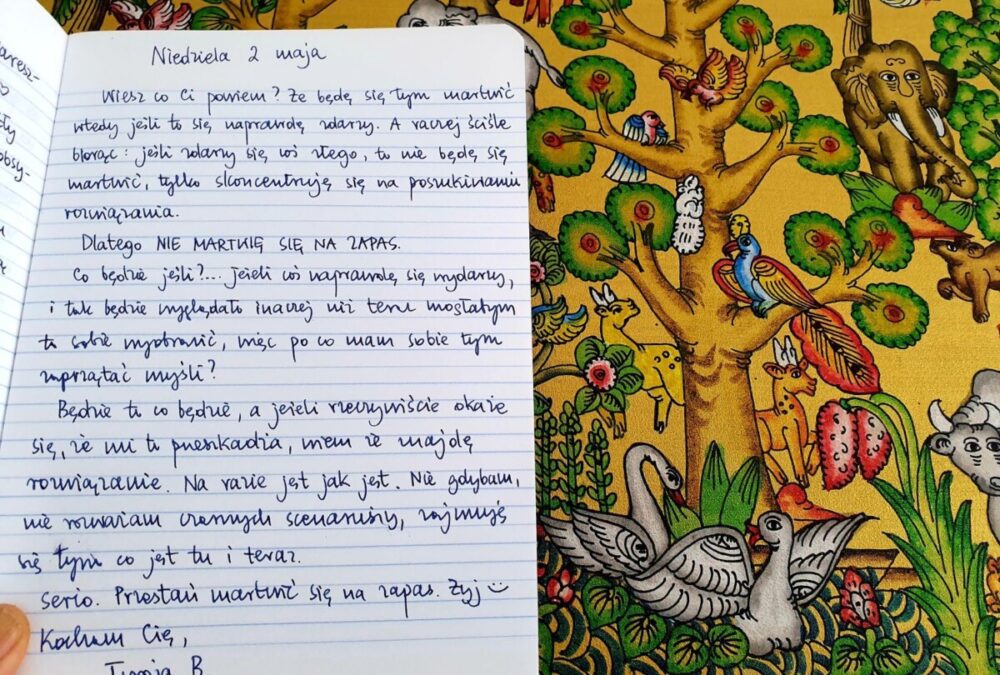 Niedziela 2 maja
Wiesz co Ci powiem? Że będę się tym martwić
wtedy jeśli to się naprawdę zdarzy. A raczej ściśle
biorąc: jeśli zdarzy się coś złego, to nie będę się
martwić, tylko skoncentruję się na poszukiwaniu
rozwiązania.
Dlatego NIE MARTWIĘ SIĘ NA ZAPAS.
Co będzie jeśli?... jeżeli coś naprawdę się wydarzy,
i tak będzie wyglądało inaczej niż teraz mogłabym
to sobie wyobrazić, więc po co mam sobie tym
zaprzątać myśli?
Będzie to co będzie, a jeżeli rzeczywiście okaże
się, że mi to przeszkadza, wiem że znajdę
rozwiązanie. Na razie jest jak jest. Nie gdybam,
nie rozważam czarnych scenariuszy, zajmuję
się tym co jest tu i teraz.
Serio. Przestań martwić się na zapas. Żyj
Kocham Cię,
Twoja B.